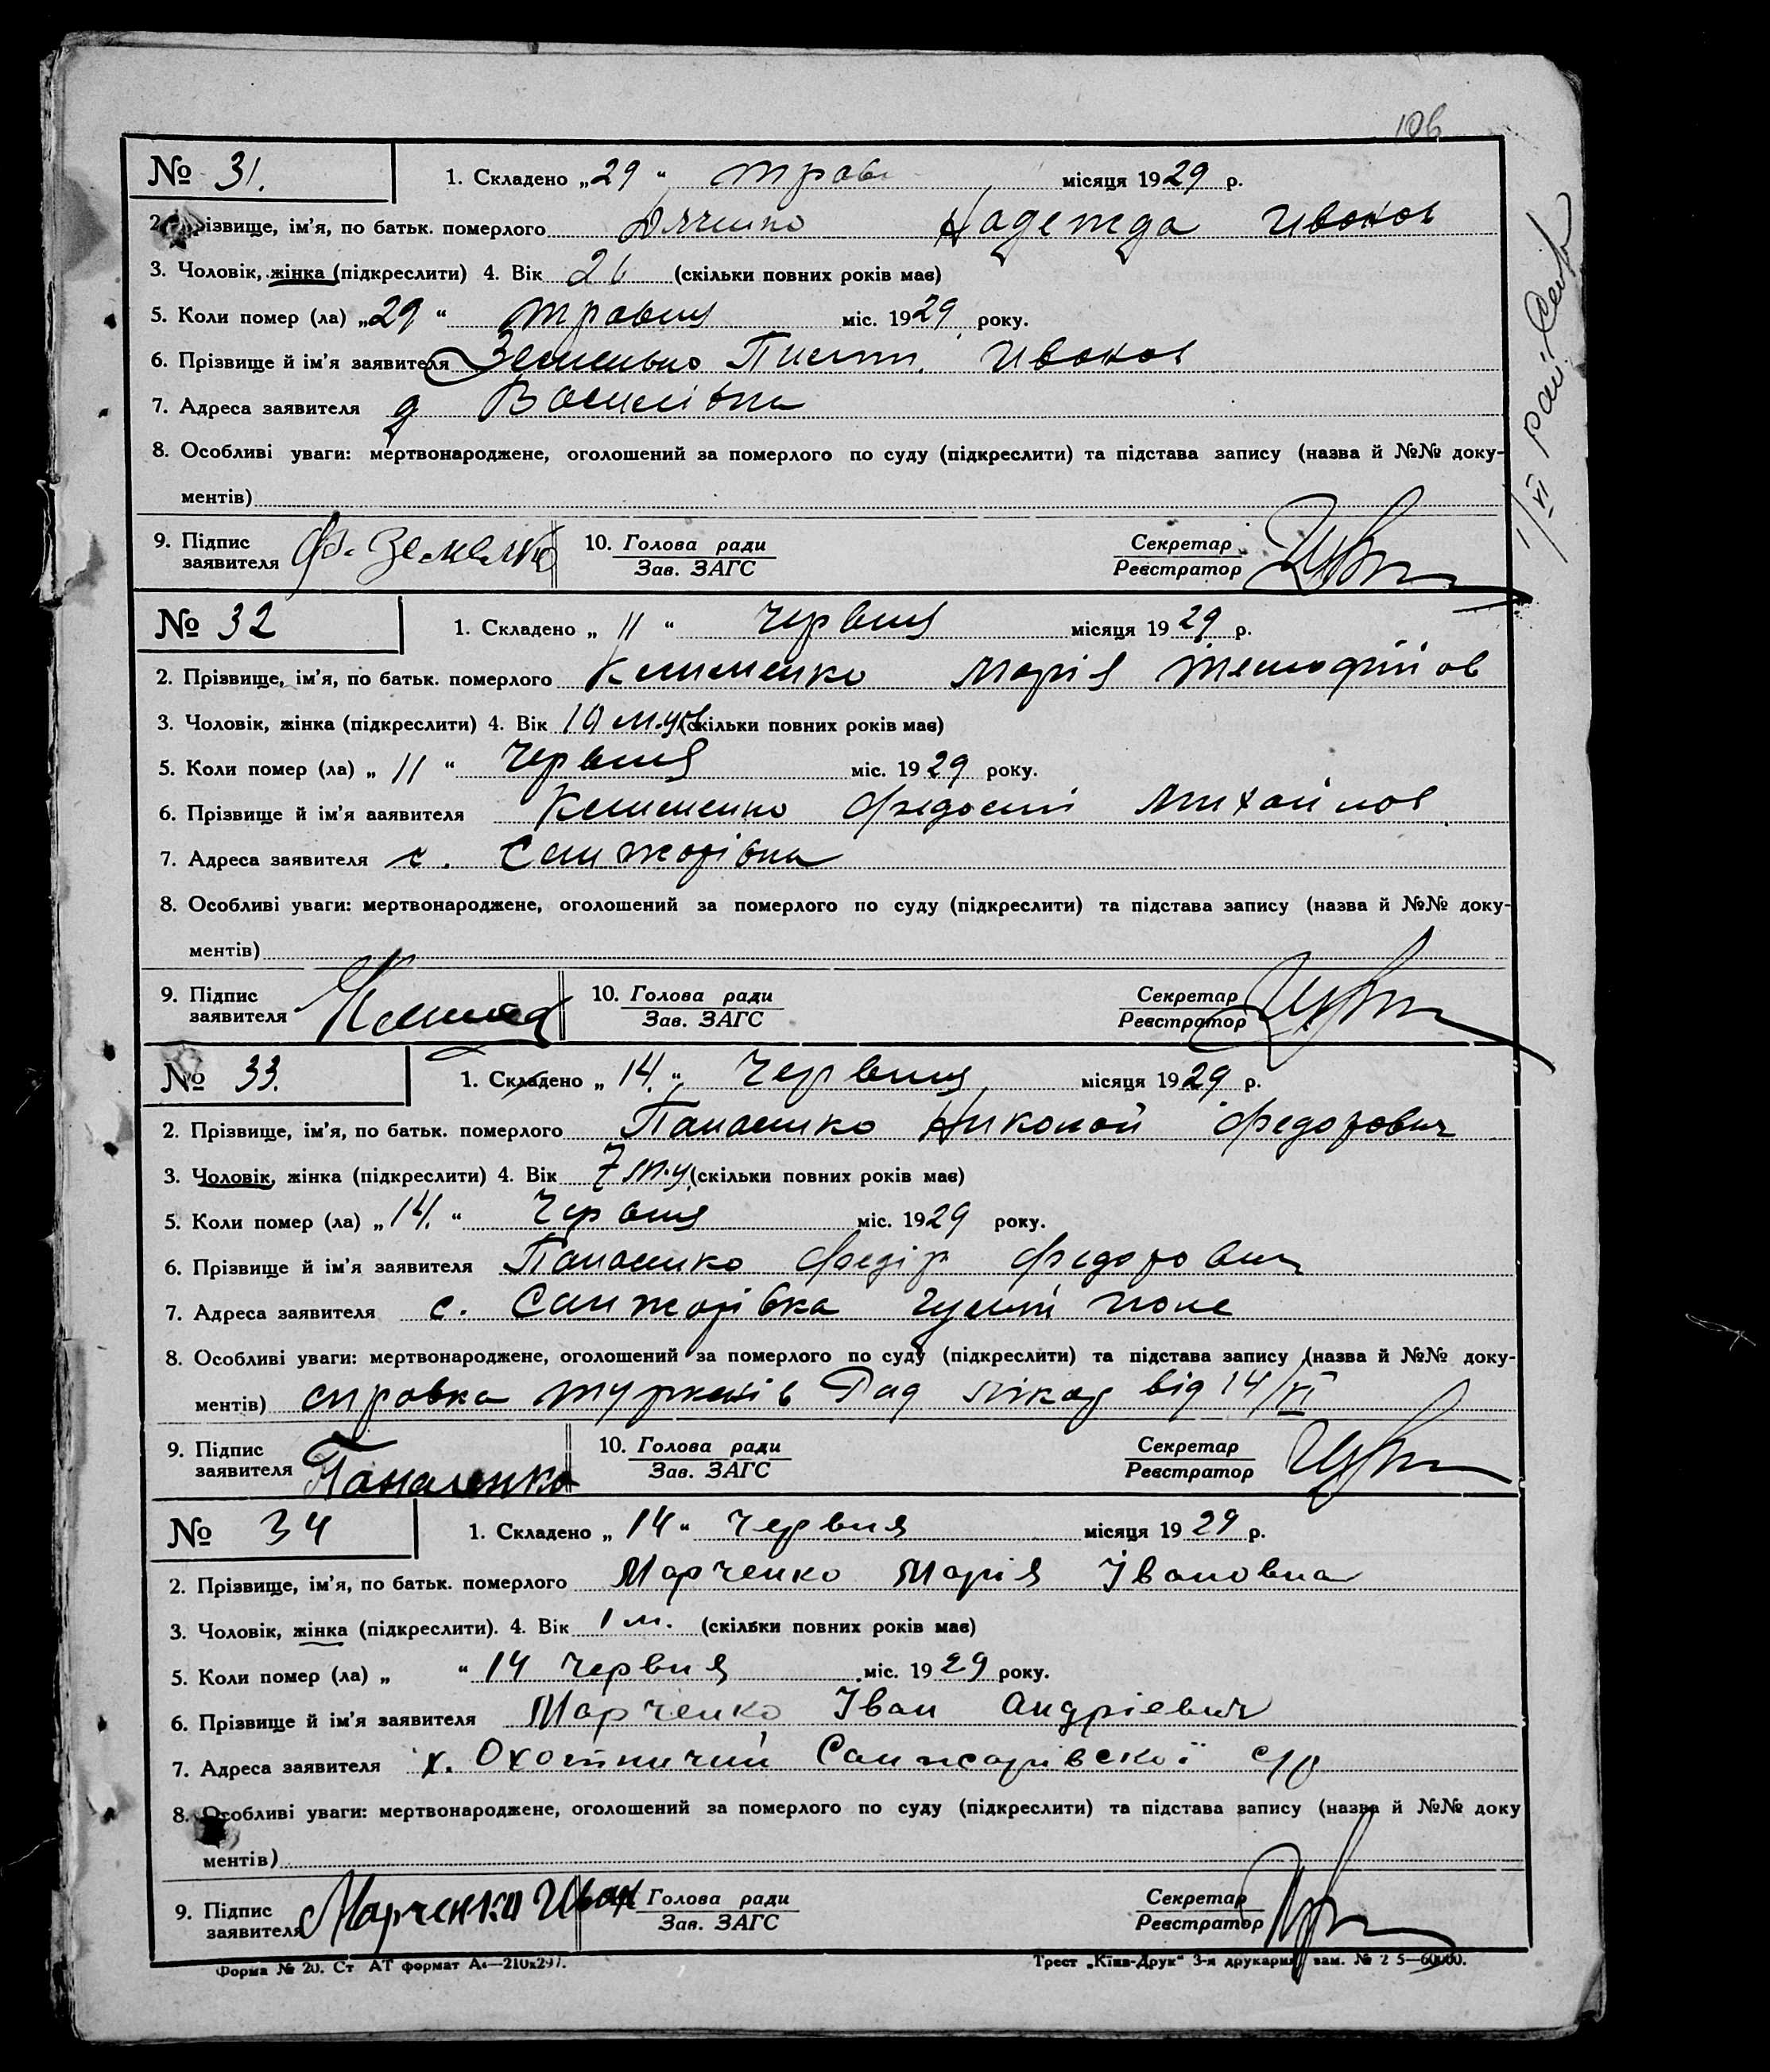 106
№ 31. 1. Складено „29“ трав місяця 1929 р.
2. Прізвище, ім'я, по батьк. померлого Надежда Иванов
3. Чоловік, жінка (підкреслити) 4. Вік 26 (скільки повних років має)
5. Коли помер (ла) „29“ травня міс. 1929 року.
6. Прізвище й ім'я заявителя Иванов
7. Адреса заявителя Василівка
8. Особливі уваги: мертвонароджене, оголошений за померлого по суду (підкреслити) та підстава запису (назва й №№ доку-
ментів)
9. Підпис заявителя 10. Голова ради Секретар
Зав. ЗАГС Реєстратор
№ 32 1. Складено „ 11 “ червня місяця 1929 р.
2. Прізвище, ім'я, по батьк. померлого Клименко Марія
3. Чоловік, жінка (підкреслити) 4. Вік 10 (скільки повних років має)
5. Коли помер (ла) „ 11 “ червня міс. 1929 року.
6. Прізвище й ім'я заявителя Клименко Федосий Михайлов
7. Адреса заявителя с. Санжарівка
8. Особливі уваги: мертвонароджене, оголошений за померлого по суду (підкреслити) та підстава запису (назва й №№ доку-
ментів)
9. Підпис заявителя 10. Голова ради Секретар
Зав. ЗАГС Реєстратор
№ 33. 1. Складено „ 14. “ червня місяця 1929 р.
2. Прізвище, ім'я, по батьк. померлого Панасенко Николай Федорович
3. Чоловік, жінка (підкреслити) 4. Вік 7 (скільки повних років має)
5. Коли помер (ла) „14.“ червня міс. 1929 року.
6. Прізвище й ім'я заявителя Панасенко Федір Федорович
7. Адреса заявителя с. Санжарівка поле
8. Особливі уваги: мертвонароджене, оголошений за померлого по суду (підкреслити) та підстава запису (назва й №№ доку-
ментів) справка Рад від 14/VI
9. Підпис заявителя Панасенко 10. Голова ради Секретар
Зав. ЗАГС Реєстратор
№ 34 1. Складено „ 14 “ червня місяця 1929 р.
2. Прізвище, ім'я, по батьк. померлого Марченко Марія Івановна
3. Чоловік, жінка (підкреслити). 4. Вік 1 м. (скільки повних років має)
5. Коли помер (ла) „ “ 14 червня міс. 1929 року.
6. Прізвище й ім'я заявителя Марченко Іван Андрієвич
7. Адреса заявителя х. Охотничий Санжарівскої с/р
8. Особливі уваги: мертвонароджене, оголошений за померлого по суду (підкреслити) та підстава запису (назва й №№ доку
ментів)
9. Підпис заявителя Марченко Иван Голова ради Секретар
Зав. ЗАГС Реєстратор
Форма № 20. Ст АТ формат А₄—210х297. Трест „Київ-Друк“ 3-я друкарня, зам. №